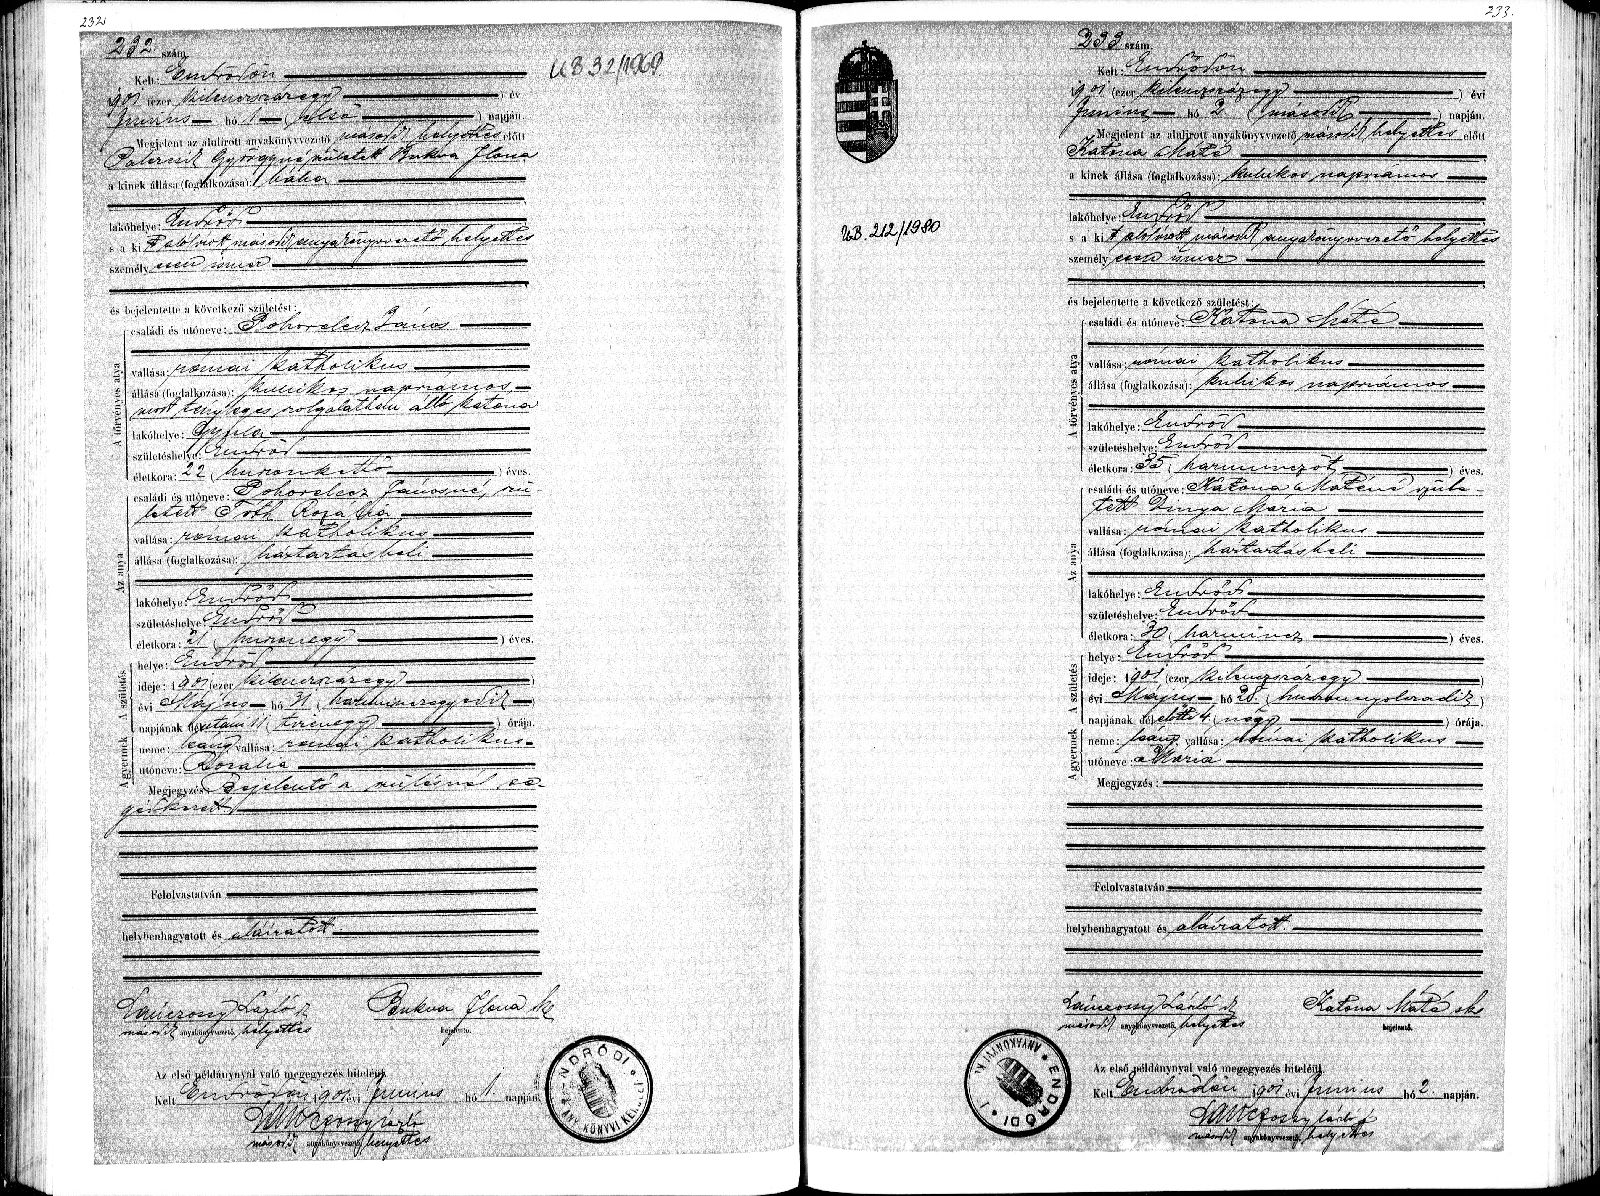 232.
232 szám.
Kelt: Endrődön
1901 (ezer kilenczszázegy) év
Junius hó 1 (első) napján.
Megjelent az alulirott anyakönyvvezető másodk helyettes előtt
Györgyné született Bukva Ilona
a kinek állása (foglalkozása): bába
lakóhelye: Endrőd
s a kit alólirott másodk anyakönyvvezető helyettes
személyesen ismer
és bejelentette a következő születést:
A törvényes atya
családi és utóneve: Pohorelecz János
vallása: római katholikus
állása (foglalkozása): kubikos napszámos
most tényleges szolgálatban álló katona
lakóhelye: Gyula
születéshelye: Endrőd
életkora: 22 (huszonkettő) éves.
Az anya
családi és utóneve: Pohorelecz Jánosné, szü-
letett Tóth Rozália
vallása: római katholikus
állása (foglalkozása): háztartásbeli
lakóhelye: Endrőd
születéshelye: Endrőd
életkora: 21 (huszonegy) éves.
A születés
helye: Endrőd
ideje: 1901 (ezer kilenczszázegy)
évi Május hó 31 (harminczegyedik)
napjának délutáni 11 (tizenegy) órája.
A gyermek
neme: leány vallása: római katholikus
utóneve: Rozália
Megjegyzés: Bejelentő a szülésnél se-
gédkezett
Felolvastatván
helybenhagyatott és aláiratott
Lánczony László
másodk anyakönyvvezető, helyettes
Bukva Ilona sk
bejelentő.
Az első példánynyal való megegyezés hiteléül
Kelt Endrődön 1901 évi Junius hó 1. napján.
Lánczony László
másodk anyakönyvvezető helyettes
ENDRŐDI ANYAKÖNYVI KERÜLET
UB 32/1969
233.
233 szám.
Kelt: Endrődön
1901 (ezer kilenczszázegy) évi
Junius hó 2 (második) napján.
Megjelent az alulirott anyakönyvvezető másodk helyettes előtt
Katona Máté
a kinek állása (foglalkozása): kubikos napszámos
lakóhelye: Endrőd
s a kit alólirott másodk anyakönyvvezető helyettes
személyesen ismer
és bejelentette a következő születést:
A törvényes atya
családi és utóneve: Katona Máté
vallása: római katholikus
állása (foglalkozása): kubikos napszámos
lakóhelye: Endrőd
születéshelye: Endrőd
életkora: 35 (harminczöt) éves.
Az anya
családi és utóneve: Katona Máténé szüle-
tett Dinya Mária
vallása: római katholikus
állása (foglalkozása): háztartásbeli
lakóhelye: Endrőd
születéshelye: Endrőd
életkora: 30 (harmincz) éves.
A születés
helye: Endrőd
ideje: 1901 (ezer kilenczszázegy)
évi Május hó 28. (huszonnyolczadik)
napjának délelőtti 4 (négy) órája.
A gyermek
neme: leány, vallása: római katholikus
utóneve: Mária
Megjegyzés:
Felolvastatván
helybenhagyatott és aláiratott.
Lánczony László
másodk anyakönyvvezető, helyettes
Katona Máté sk
bejelentő.
Az első példánynyal való megegyezés hiteléül
Kelt Endrődön 1901 évi Junius hó 2. napján.
Lánczony László
másodk anyakönyvvezető, helyettes
UB. 212/1980